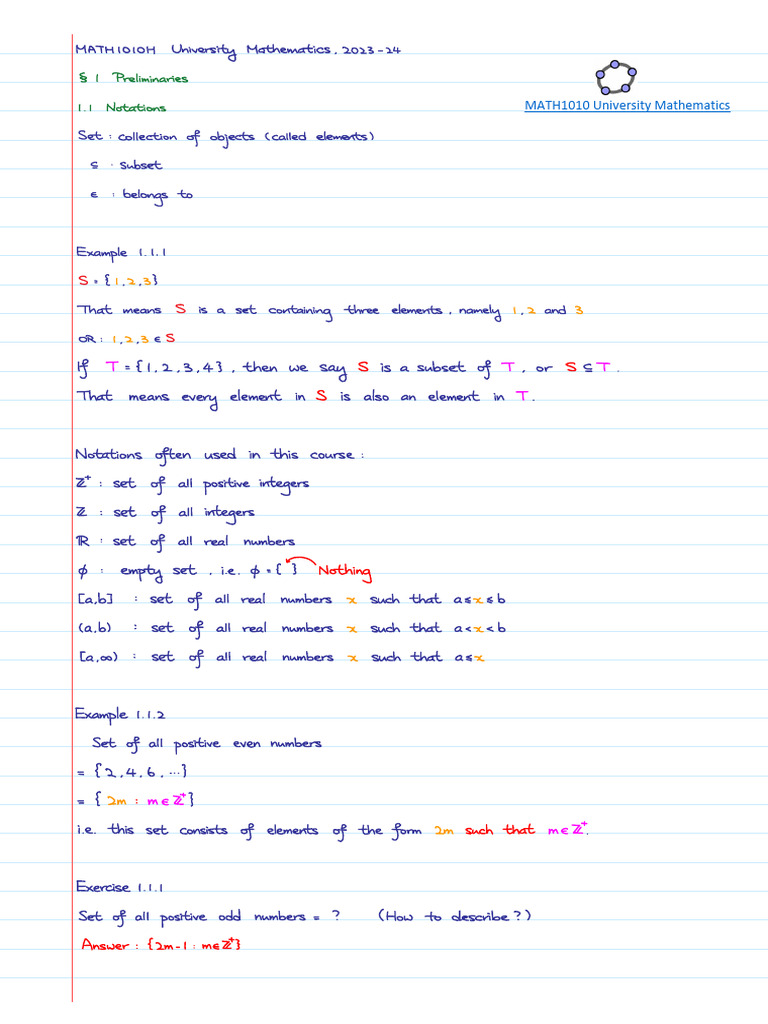 MATH1010H University Mathematics, 2023-24
§ 1 Preliminaries
1.1 Notations
MATH1010 University Mathematics
Set : collection of objects (called elements)
⊆ : subset
∈ : belongs to
Example 1.1.1
S = {1,2,3}
That means S is a set containing three elements, namely 1,2 and 3
OR : 1,2,3 ∈ S
If T = {1,2,3,4}, then we say S is a subset of T, or S ⊆ T.
That means every element in S is also an element in T.
Notations often used in this course :
ℤ⁺ : set of all positive integers
ℤ : set of all integers
ℝ : set of all real numbers
ϕ : empty set, i.e. ϕ = { } Nothing
[a,b] : set of all real numbers x such that a ≤ x ≤ b
(a,b) : set of all real numbers x such that a < x < b
[a,∞) : set of all real numbers x such that a ≤ x
Example 1.1.2
Set of all positive even numbers
= {2,4,6,⋯}
= { 2m : m ∈ ℤ⁺}
i.e. this set consists of elements of the form 2m such that m ∈ ℤ⁺.
Exercise 1.1.1
Set of all positive odd numbers = ? (How to describe?)
Answer : {2m-1 : m ∈ ℤ⁺}